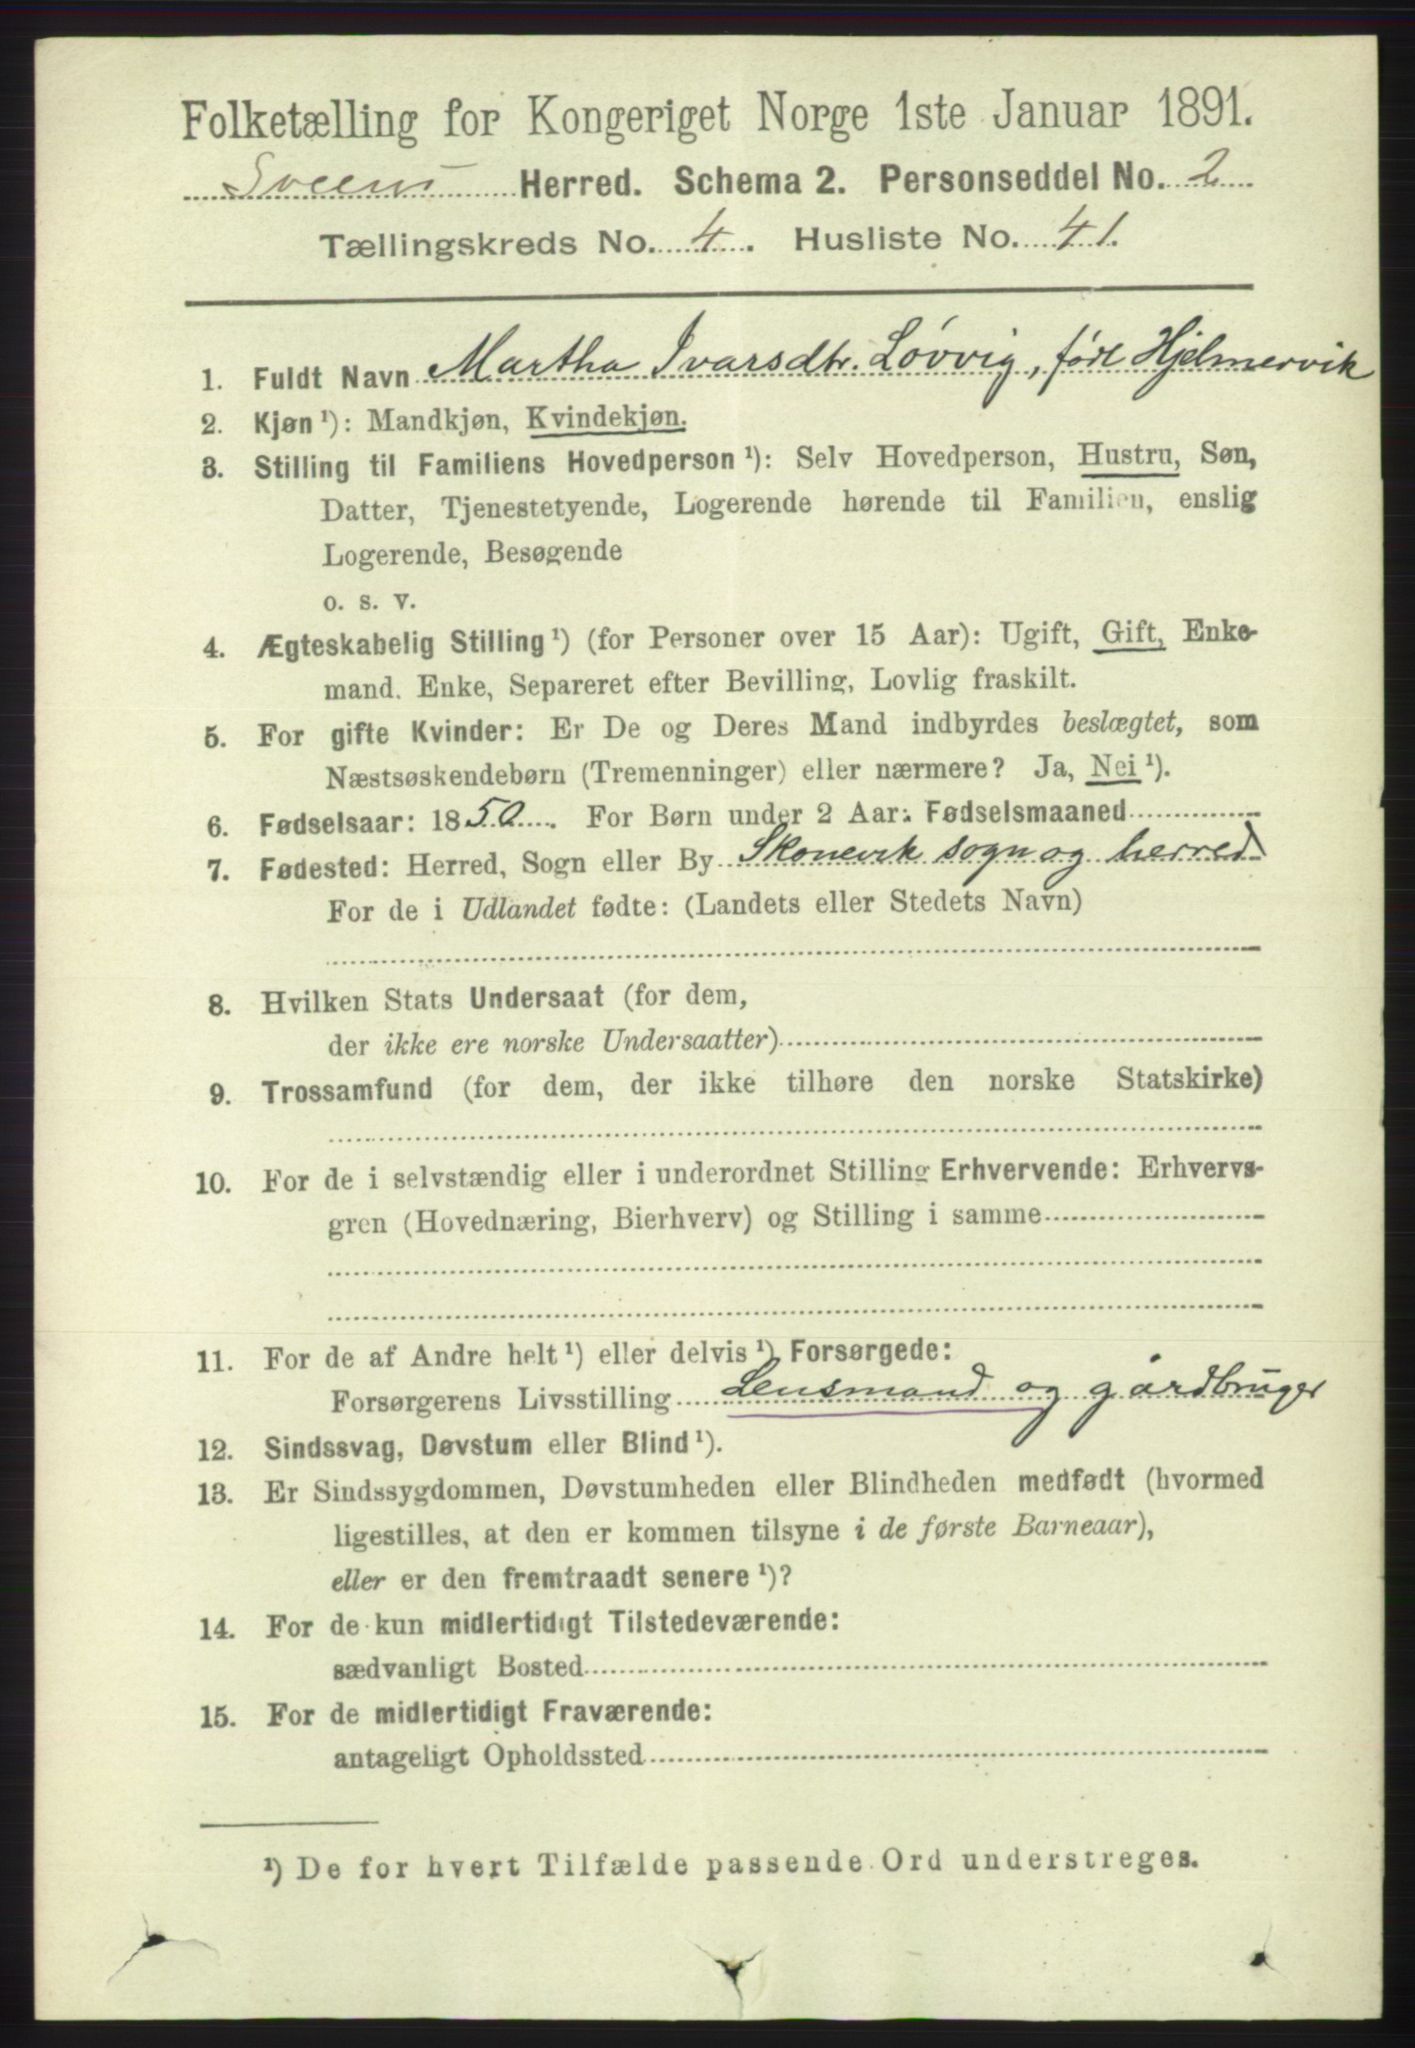 Folketælling for Kongeriget Norge 1ste Januar 1891.
Sveens Herred. Schema 2. Personseddel No. 2
Tællingskreds No. 4. Husliste No. 41.
1. Fuldt Navn Martha Ivarsdtr. Løvvig, født Hjelmervik
2. Kjøn ¹): Mandkjøn, Kvindekjøn.
3. Stilling til Familiens Hovedperson ¹): Selv Hovedperson, Hustru, Søn,
Datter, Tjenestetyende, Logerende hørende til Familien, enslig
Logerende, Besøgende
o. s. v.
4. Ægteskabelig Stilling ¹) (for Personer over 15 Aar): Ugift, Gift, Enke-
mand. Enke, Separeret efter Bevilling, Lovlig fraskilt.
5. For gifte Kvinder: Er De og Deres Mand indbyrdes beslægtet, som
Næstsøskendebørn (Tremenninger) eller nærmere? Ja, Nei ¹).
6. Fødselsaar: 1850. For Børn under 2 Aar: Fødselsmaaned
7. Fødested: Herred, Sogn eller By Skonevik sogn og herred
For de i Udlandet fødte: (Landets eller Stedets Navn)
8. Hvilken Stats Undersaat (for dem,
der ikke ere norske Undersaatter)
9. Trossamfund (for dem, der ikke tilhøre den norske Statskirke)
10. For de i selvstændig eller i underordnet Stilling Erhvervende: Erhvervs-
gren (Hovednæring, Bierhverv) og Stilling i samme
11. For de af Andre helt ¹) eller delvis ¹) Forsørgede:
Forsørgerens Livsstilling Lensmand og gårdbruger
12. Sindssvag, Døvstum eller Blind ¹).
13. Er Sindssygdommen, Døvstumheden eller Blindheden medfødt (hvormed
ligestilles, at den er kommen tilsyne i de første Barneaar),
eller er den fremtraadt senere ¹)?
14. For de kun midlertidigt Tilstedeværende:
sædvanligt Bosted
15. For de midlertidigt Fraværende:
antageligt Opholdssted
¹) De for hvert Tilfælde passende Ord understreges.